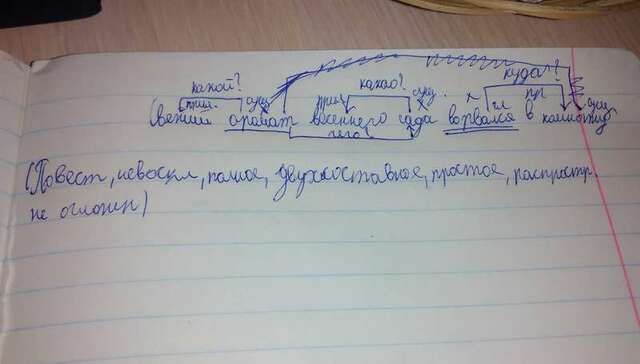 какой? какого? куда?
прил. сущ. прил. сущ. гл пр сущ.
Свежий аромат весеннего сада ворвался в комнату
чего?
(Повест, невоскл, полное, двухсоставное, простое, распростр.
не ослонен)